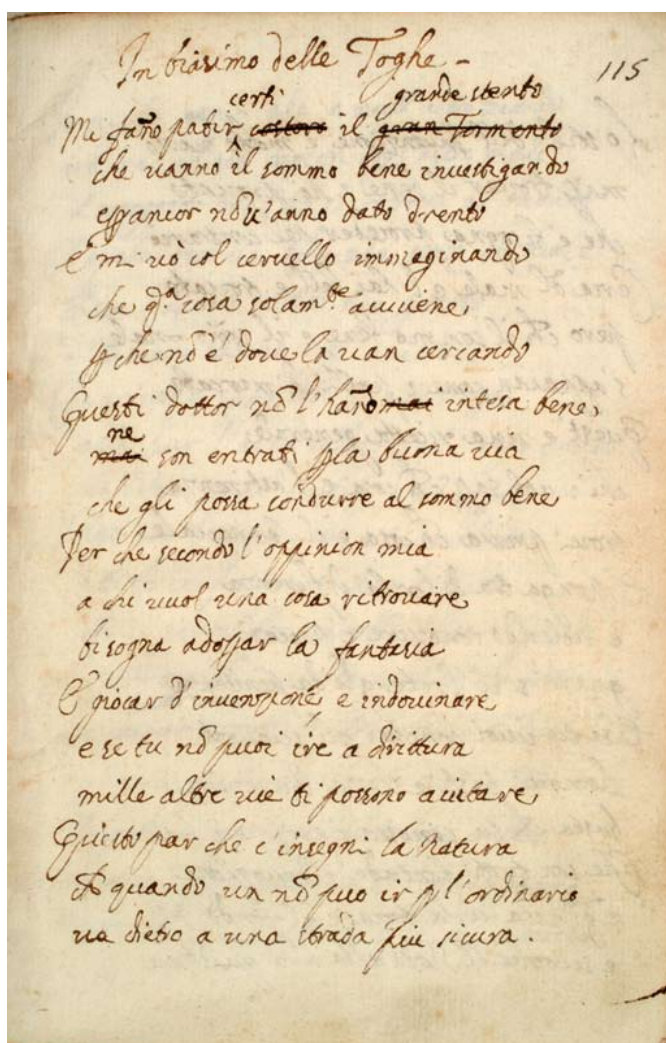 In biasimo delle Toghe -
115
certi grande stento
Mi fano patir costoro il gran Tormento
che vanno il sommo bene investigando
e pancor nõ v'anno dato drento
E mi vò col cervello immaginando
che q.ª cosa solam.te avviene
p che nõ è dove la van cercando
Questi dottor nõ l'hano mai intesa bene
ne
mai son entrati p la buona via
che gli possa condurre al sommo bene
Per che secondo l'oppinion mia
a chi vuol una cosa ritrovare
bisogna adoprar la fantasia
E giocar d'invenzione, e indovinare
e se tu nõ puoi ire a dirittura
mille altre vie ti possono aiutare
Questo par che c'insegni la natura
che quando un nõ puo ir p l'ordinario
va dietro a una strada piu sicura.